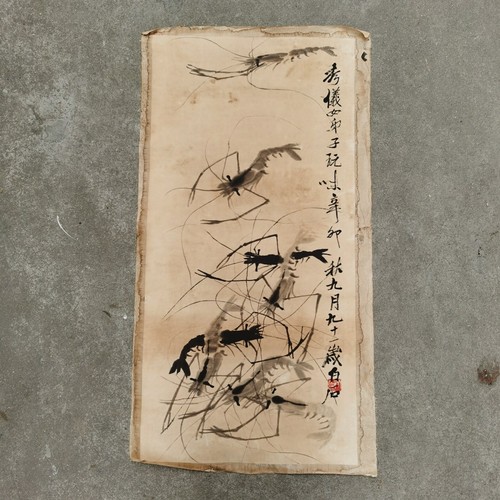 秀儀女弟子玩味辛卯秋九月九十一歲白石